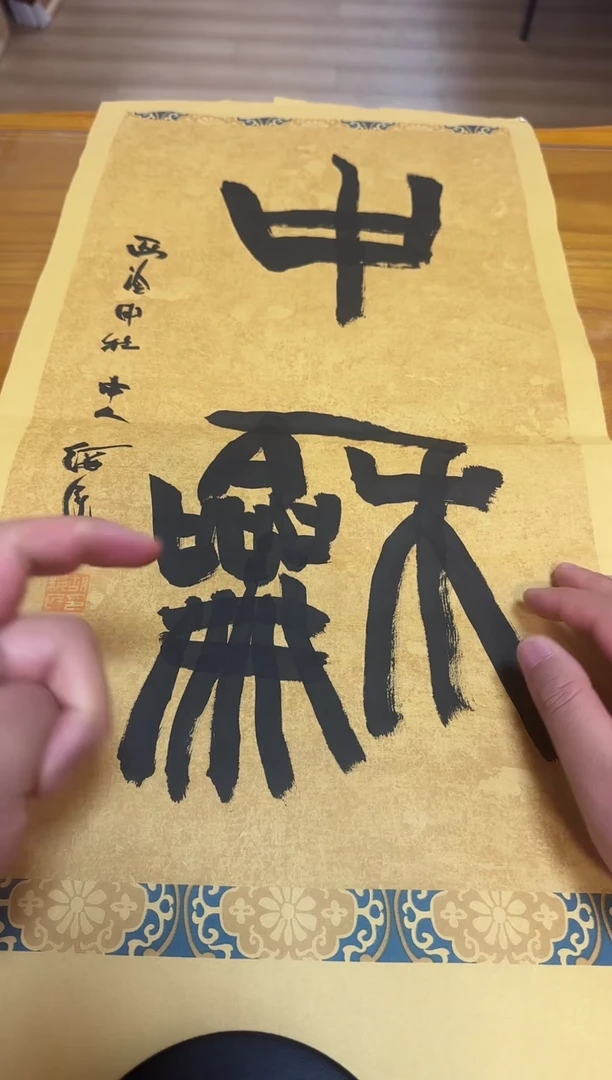 中龢
西泠印社中人